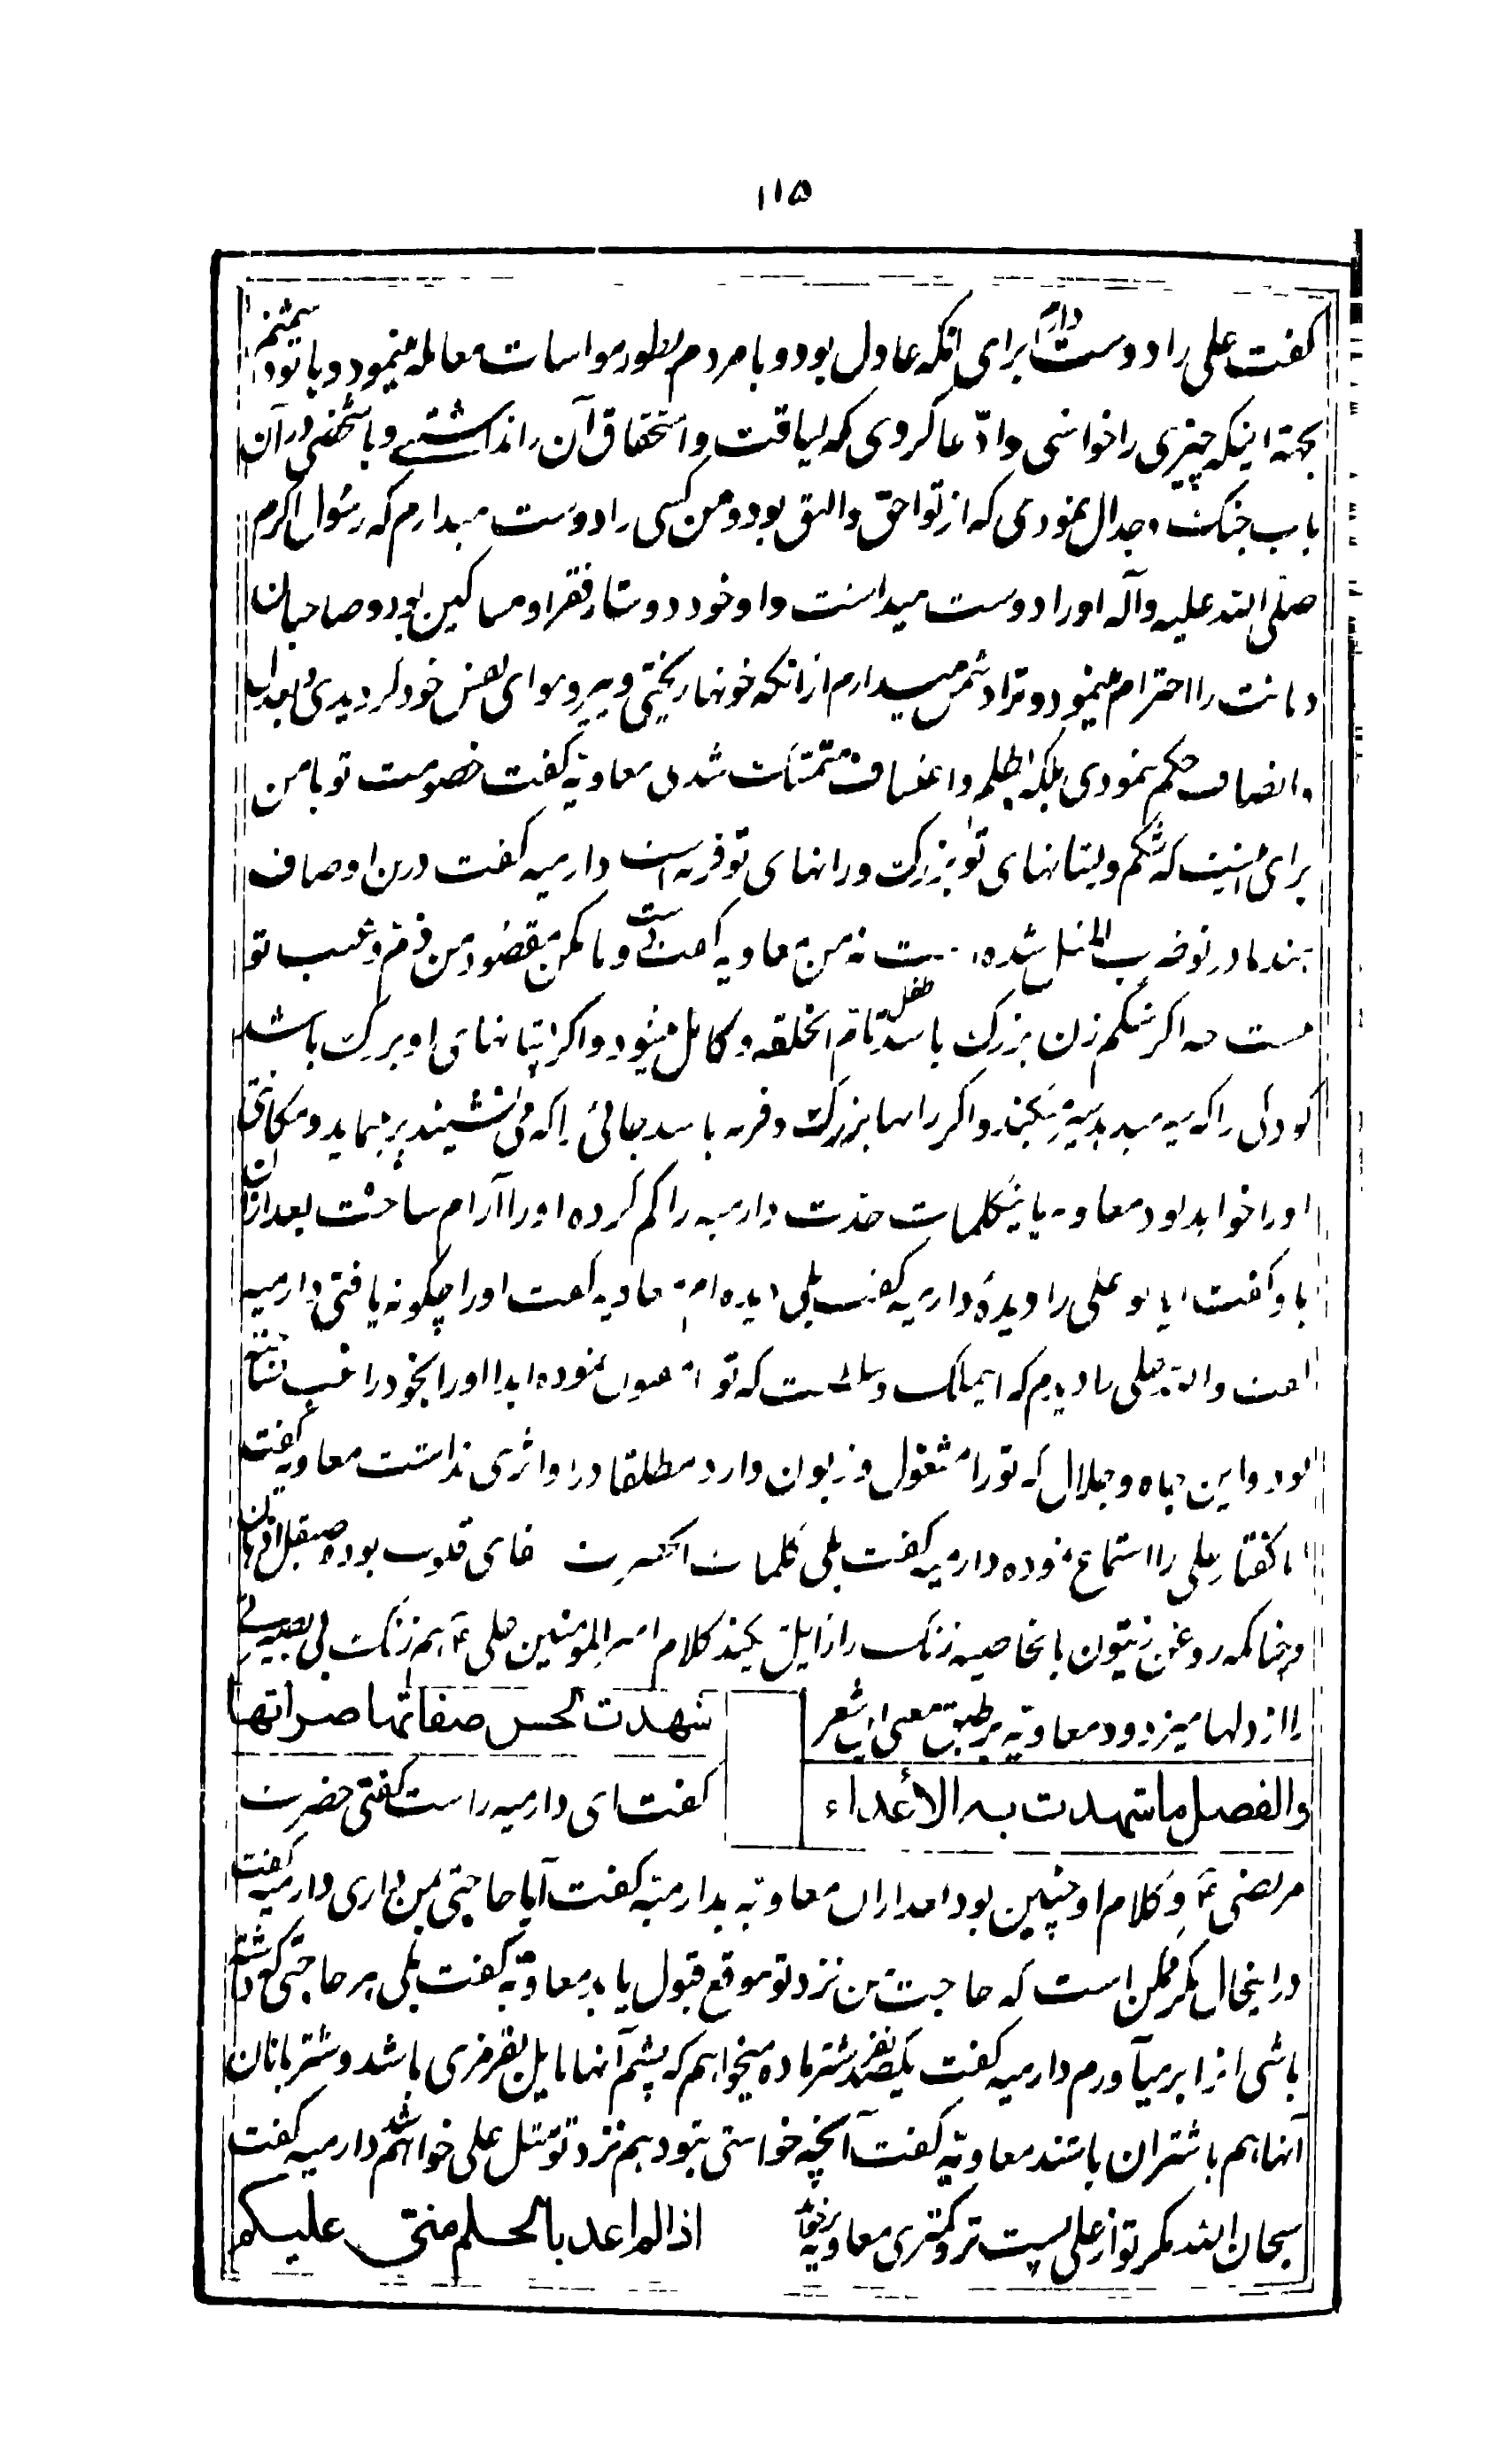 ۱۱۵
گفت علی را دوست دارم برای انکه عادل بود و با مردم بطور مواسات معامله مینمود و با تو دشمنم
بجهة اینکه چیزی را خواستی و ادّعا کردی که لیاقت و استحقاق آن را نداشتے و با شخصی در آن
باب جنک و جدال نمودی که از تو احقّ و الیق بود و من کسی را دوست میدارم که رسول اکرم
صلّی الله علیه و آله او را دوست میداشت و او خود دوستار فقرا و مساکین بود و صاحبان
دیانت را احترام مینمود و ترا دشمن میدارم از انکه خونها ریختی و پیرو هوای نفس خود کردیدی و بعدل
و انصاف حکم ننمودی بلکه بظلم و اعتساف متمسّک شدی معاویه گفت خصومت تو با من
برای اینست که شکم و پستانهای تو بزرک و رانهای تو فربه است دارمیه گفت درین اوصاف
هند مادر تو ضرب المثل شده است نه من معاویه گفت و لکن مقصود من ذمّ و عیب تو
نیست چه اگر شکم زن بزرک باشد طفل تامّ الخلقه و کامل میشود و اکر پستانهای او بزرک باشد
کودکی را که میدهد سیر میکند و اکر رانها بزرک و فربه باشد جائی را که می‌نشیند پر مینماید و مکانتی
او را خواهد بود معاویه باینکلمات حدّت دارمیه را کم کرده او را آرام ساخت بعد از ان
باو گفت ایا تو علی را دیدهٔ دارمیه گفت بلی دیده‌ام معاویه گفت او را چکونه یافتی دارمیه
گفت والله علی را دیدم که این ملک و سلطنت که تو را مفتون نموده ابدا او را بخود راغب نساخته
بود و این جاه و جلال که تو را مشغول و زبون دارد مطلقا در او اثری نداشت معاویه گفت
ایا کفتار علی را استماع نموده دارمیه گفت بلی کلمات انحضرت شفای قلوب بود و صیقل اذهان
و چنانکه روغن زیتون بالخاصیه زنک را زایل میکند کلام امیر المومنین علی ع هم زنک بی بصیرتے
را از دلها میزدود معاویه بر طبق معنی این شعر
شهدت لحسن صفاتها ضراتها
والفضل ما شهدت به الأعداء
گفت ای دارمیه راست گفتی حضرت
مرتضی ع و کلام او چنین بود بعد از ان معاویه بدارمیه گفت آیا حاجتی بمن داری دارمیه گفت
در اینحال مکر ممکن است که حاجت من نزد تو موقع قبول یابد معاویه گفت بلی هر حاجتی که داشته
باشی انرا برمیآورم دارمیه گفت یکصد نفر شتر ماده میخواهم که پشم آنها مایل بقرمزی باشد و شتربانان
آنها هم با شتران باشند معاویه گفت آنچه خواستی بتو دهم نزد تو مثل علی خواهم شد دارمیه گفت
سبحان الله مکر تو از علی پست تر و کمتری معاویه برخواند
اذا لم اعد بالحلم منّی علیکم